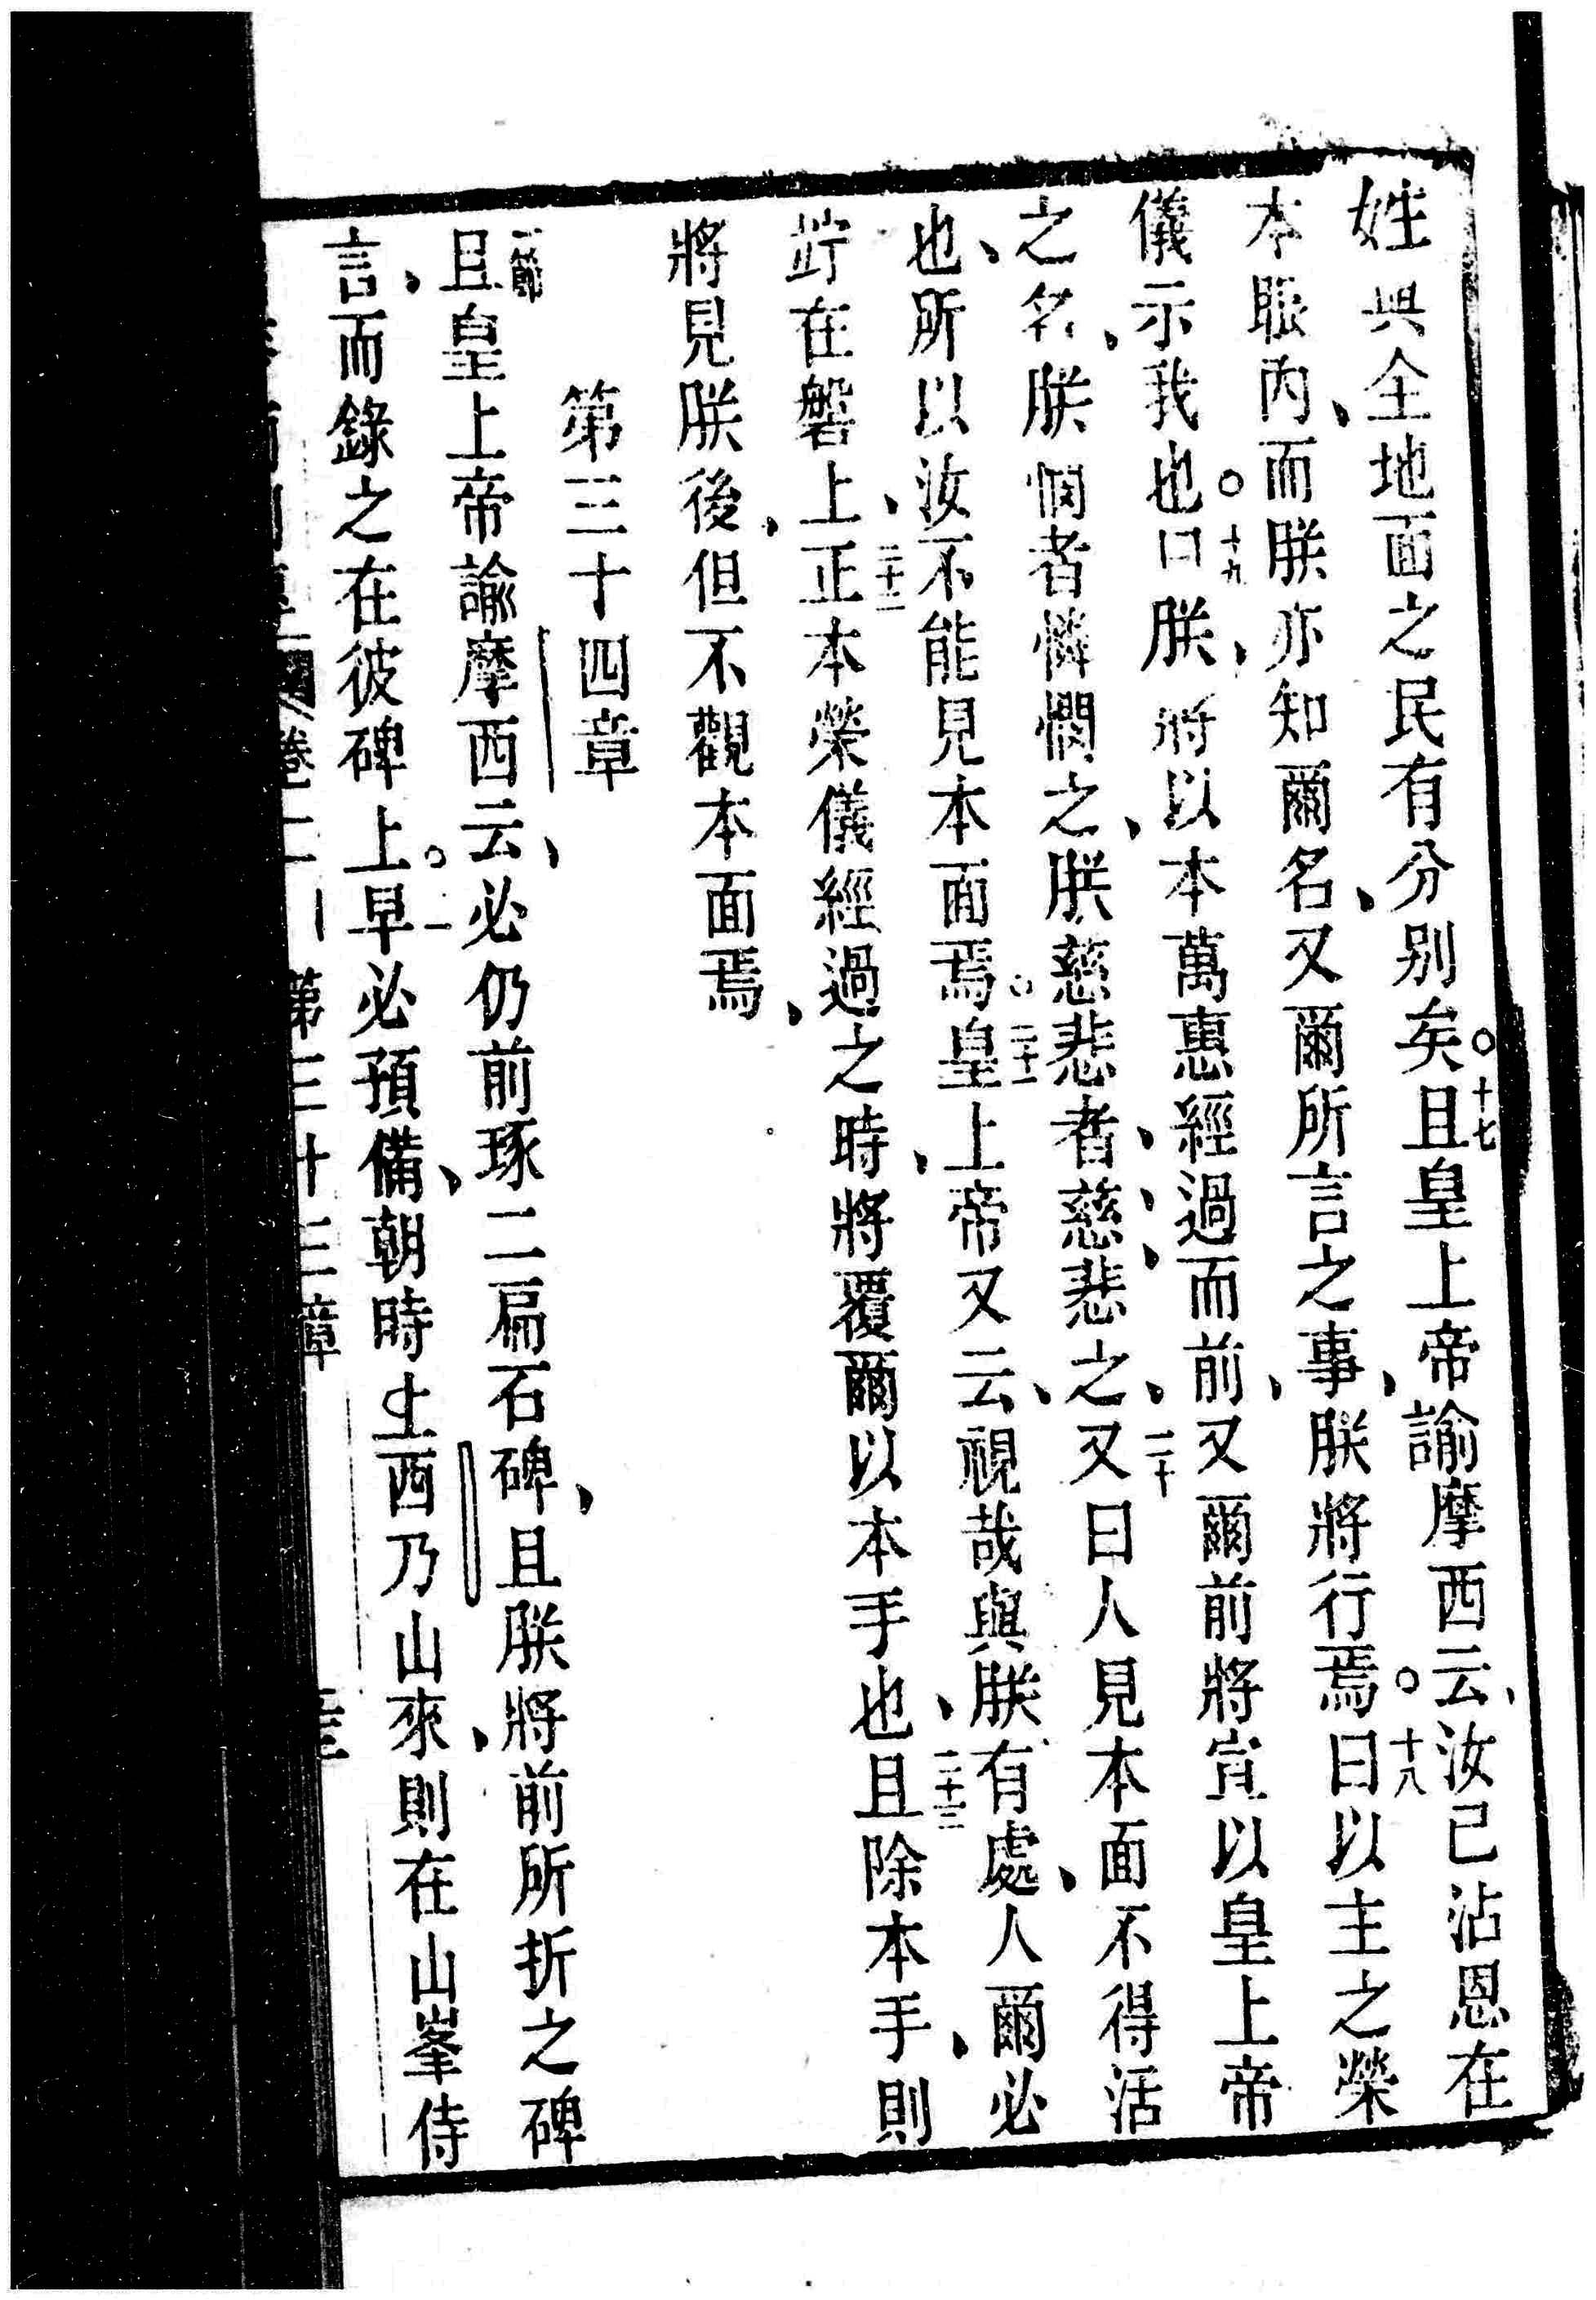 姓與全地面之民有分別矣○十七且皇上帝諭摩西云、汝已沾恩在
本眼內、而朕亦知爾名、又爾所言之事、朕將行焉○十八曰以主之榮
儀示我也○十九曰朕、將以本萬惠經過而前、又爾前將宣以皇上帝
之名、朕憫者憐憫之、朕慈悲者、慈悲之、二十又曰人見本面不得活
也、所以汝不能見本面焉○二十一皇上帝又云、視哉與朕有處、人爾必
竚在磐上、二十二正本榮儀經過之時、將覆爾以本手也、二十三且除本手、則
將見朕後、但不觀本面焉、
第三十四章
一節
且皇上帝諭摩西云、必仍前琢二扁石碑、且朕將前所折之碑
言、而錄之在彼碑上○二早必預備、朝時上西乃山來、則在山峯侍
卷二 第三十三章